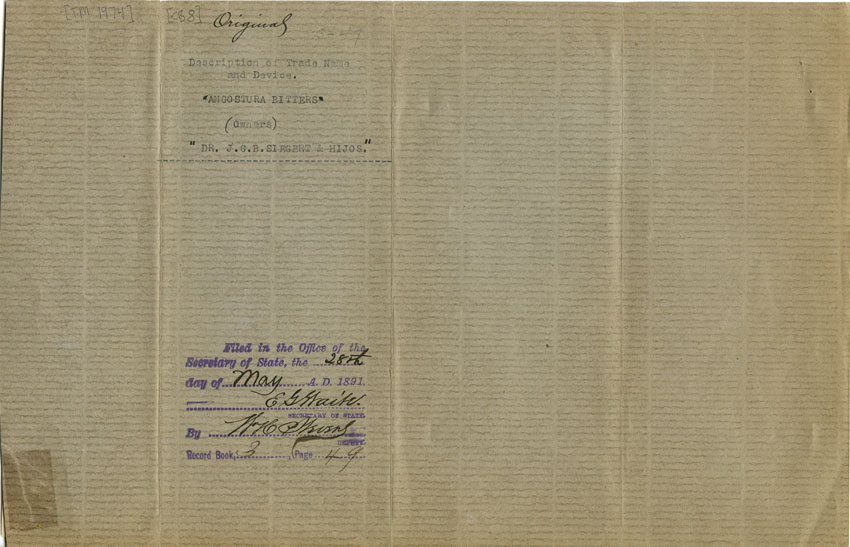 [TM 1974] [C68]
Original
3-49
Description of Trade Name
and Device.
"ANGOSTURA BITTERS"
(Owners)
" DR. J.G.B.SIEGERT & HIJOS."
Filed in the Office of the
Secretary of State, the 28th
day of May A. D. 1891.
E G Waite.
SECRETARY OF STATE.
By W H
DEPUTY.
Record Book, 3, Page 49